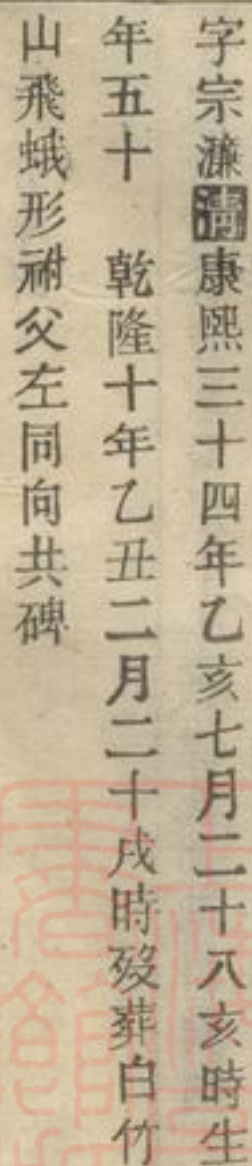 字宗濂清康熙三十四年乙亥七月二十八亥時生
年五十　乾隆十年乙丑二月二十戌時歿葬白竹
山飛蛾形祔父左同向共碑